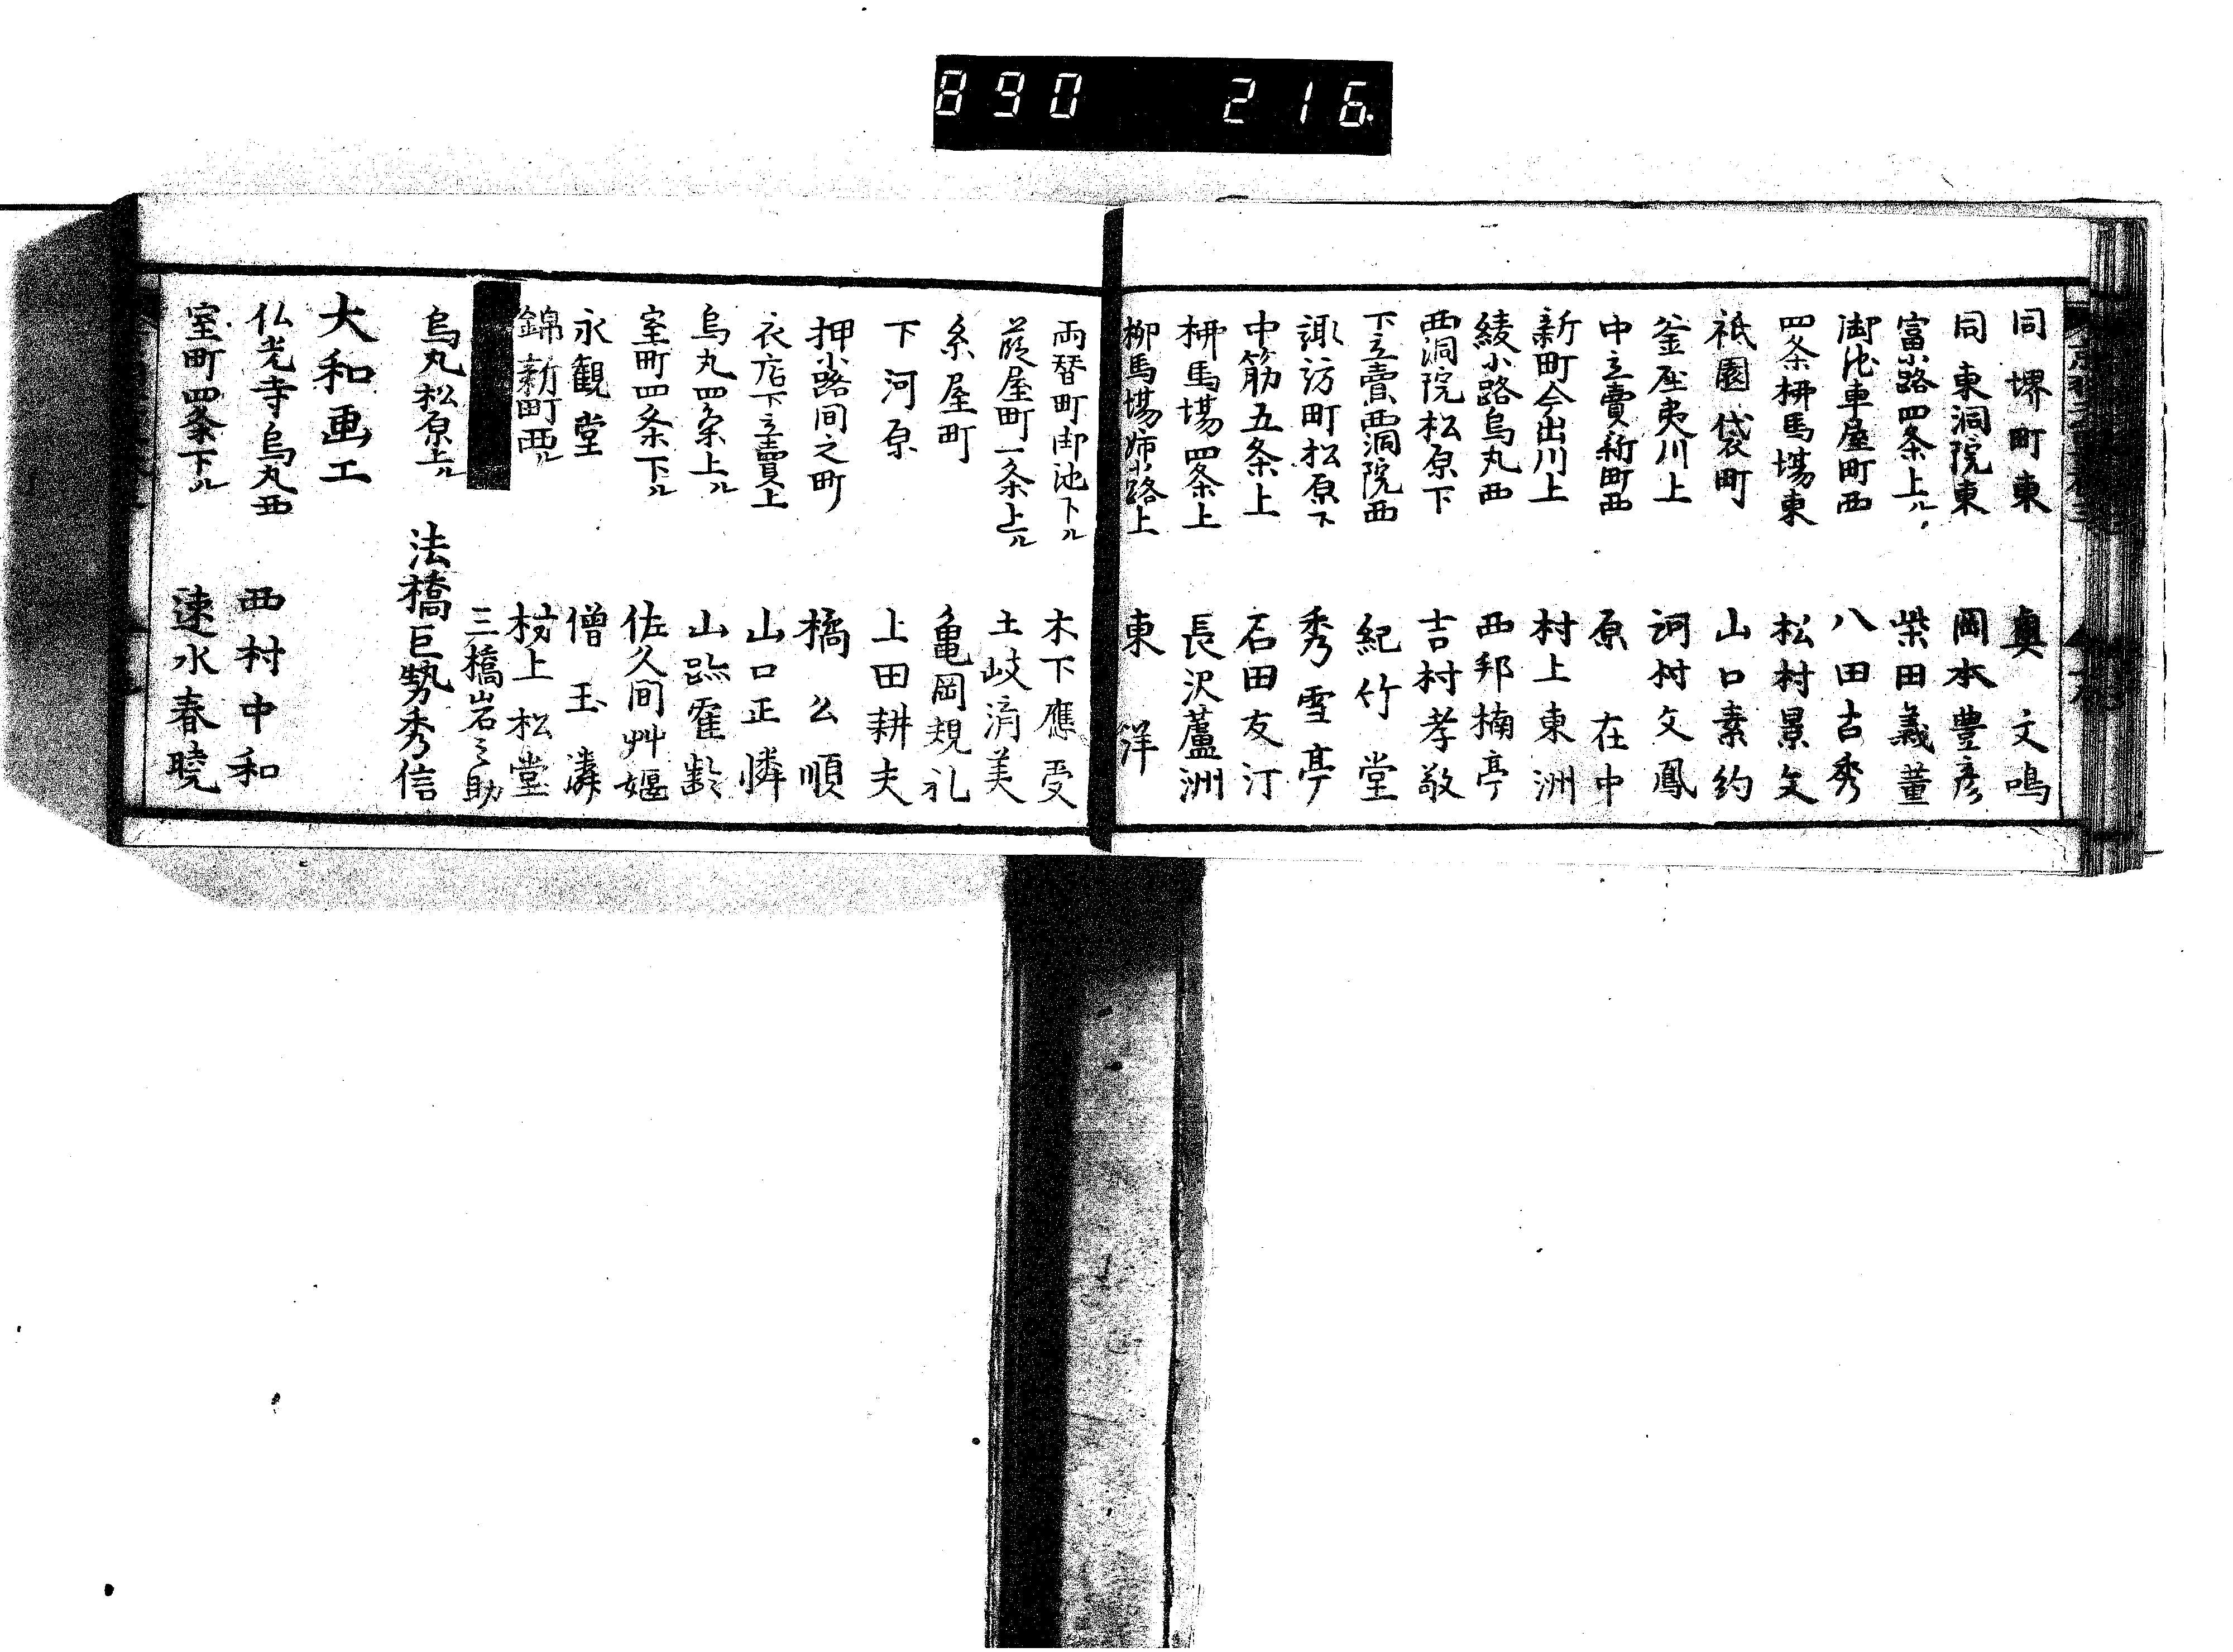 890 216
同堺町東 奥文鳴
同東洞院東 岡本豊彦
富小路四条上ル 柴田義董
御池車屋町西 八田古秀
四条柳馬場東 松村景文
祇園袋町 山口素約
釜座夷川上 河村文鳳
中立賣新町西 原在中
新町今出川上 村上東洲
綾小路烏丸西 西邨楠亭
西洞院松原下 吉村孝敬
下立賣西洞院西 紀竹堂
諏訪町松原下 秀雪亭
中筋五条上 石田友汀
柳馬場四条上 長沢蘆洲
柳馬場姉小路上 東洋
両替町御池下ル 木下應受
葭屋町一条上ル 土岐済美
糸屋町 亀岡規礼
下河原 上田耕夫
押小路間之町 橘公順
衣店下立賣上 山口正憐
烏丸四条上ル 山跡隺齢
室町四条下ル 佐久間艸偃
永観堂 僧玉潾
錦新町西ル 村上松堂
三橋岩之助
烏丸松原上ル 法橋巨勢秀信
大和画工
仏光寺烏丸西 西村中和
室町四条下ル 速水春暁